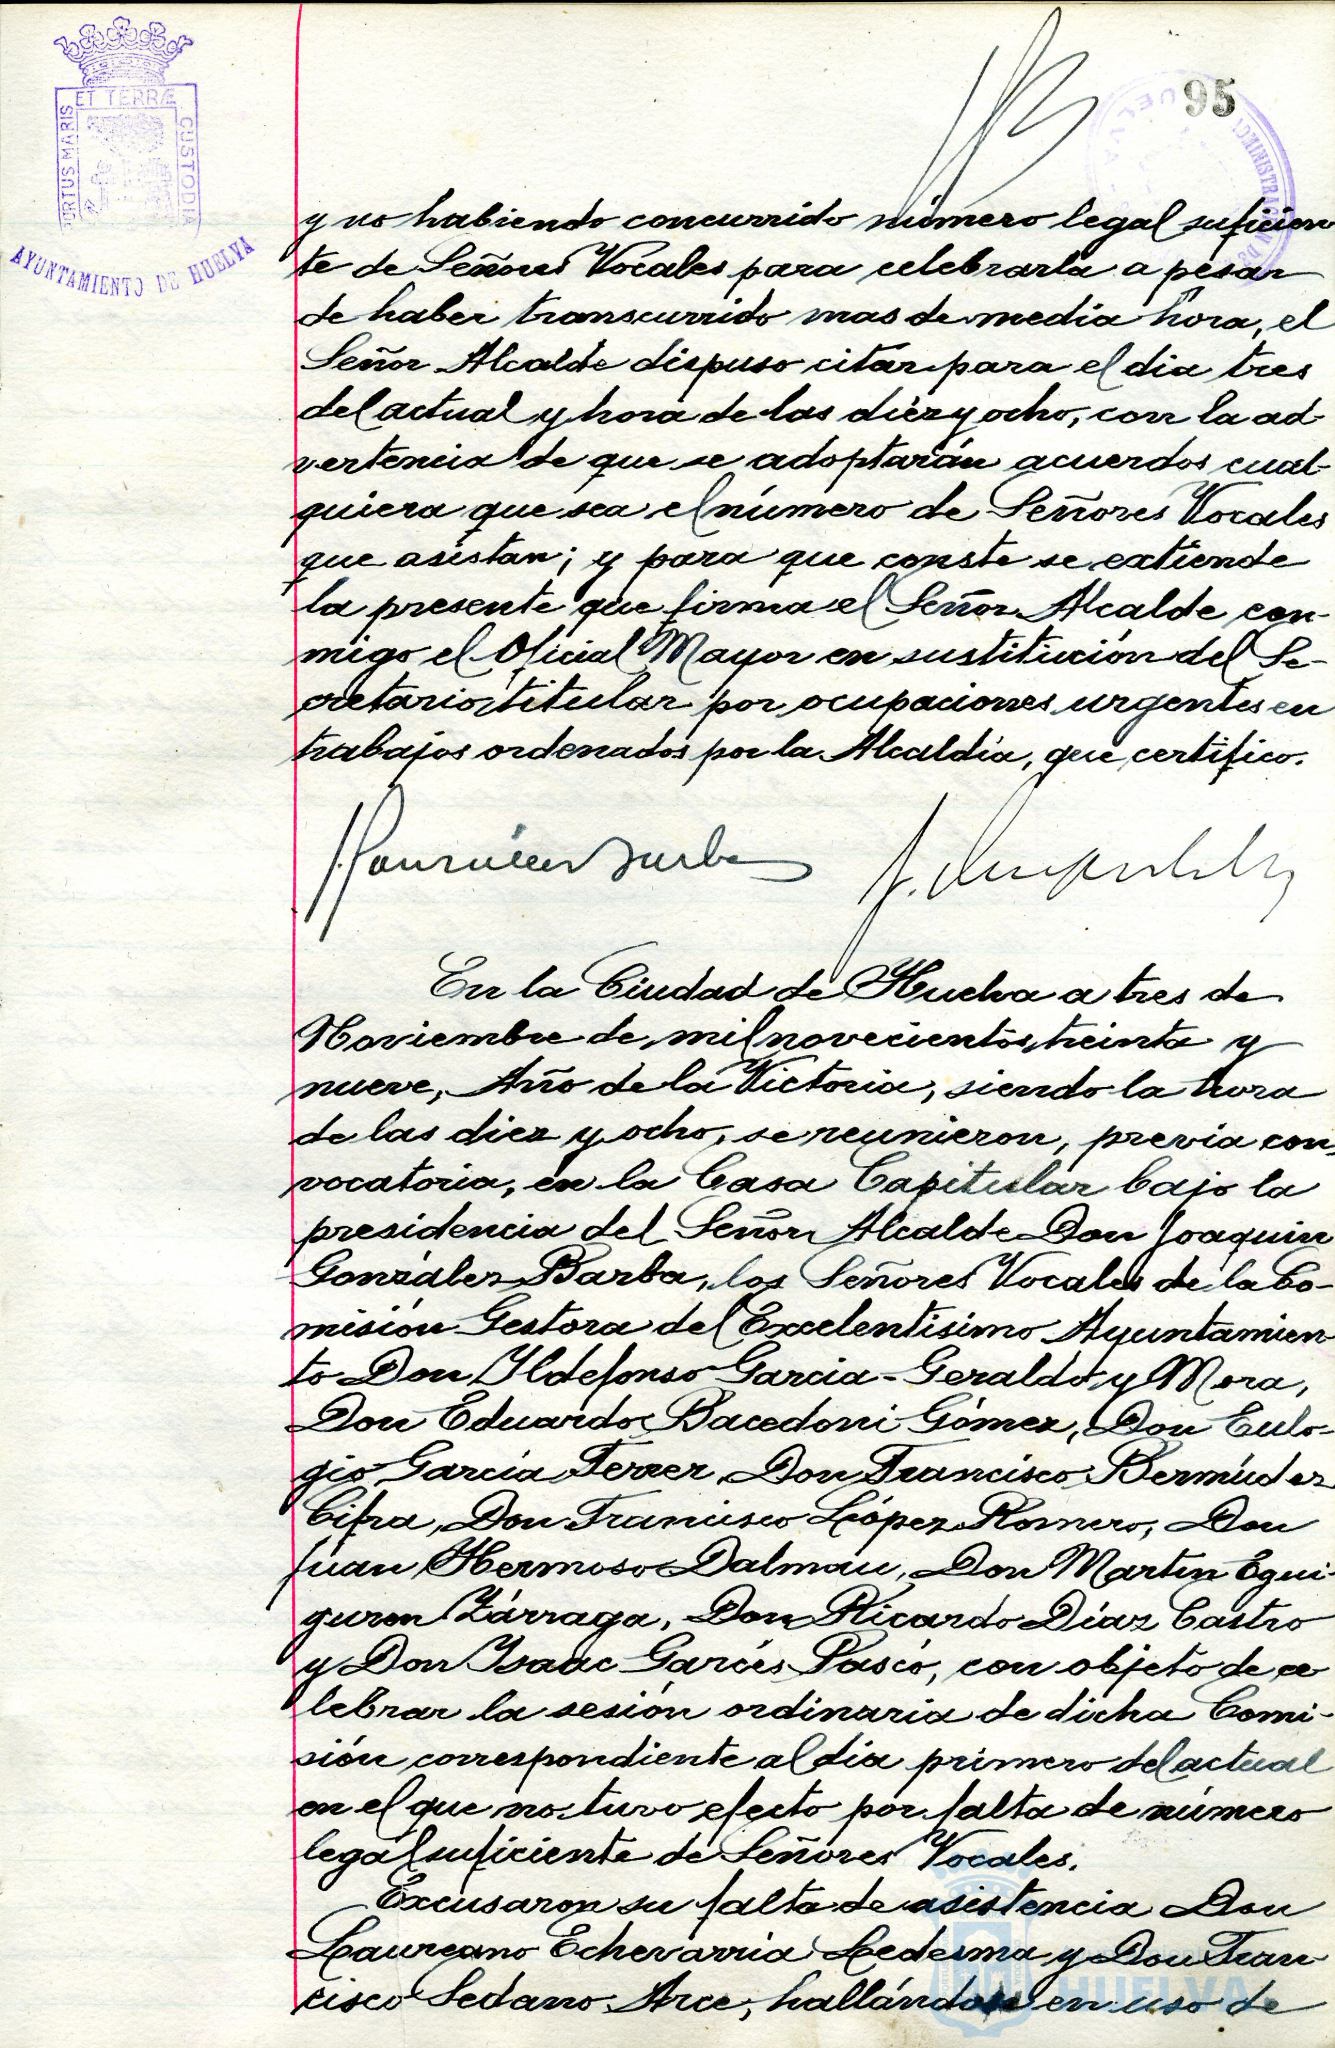 95
PORTUS MARIS ET TERRÆ CUSTODIA
AYUNTAMIENTO DE HUELVA
y no habiendo concurrido número legal suficien
te de Señores Vocales para celebrarla a pesar
de haber transcurrido mas de media hora, el
Señor Alcalde dispuso citar para el dia tres
del actual y hora de las diez y ocho, con la ad-
vertencia de que se adoptarán acuerdos cual-
quiera que sea el número de Señores Vocales
que asistan; y para que conste se extiende
la presente que firma el Señor Alcalde con-
migo el Oficial Mayor en sustitución del Se-
cretario titular por ocupaciones urgentes en
trabajos ordenados por la Alcaldia, que certifico.
En la Ciudad de Huelva a tres de
Noviembre de mil novecientos treinta y
nueve, Año de la Victoria, siendo la hora
de las diez y ocho, se reunieron, previa con-
vocatoria, en la Casa Capitular bajo la
presidencia del Señor Alcalde Don Joaquin
González Barba, los Señores Vocales de la Co-
misión Gestora del Excelentisimo Ayuntamien-
to Don Ildefonso Garcia-Geraldo y Mora,
Don Eduardo Bacedoni Gómez, Don Eulo-
gio Garcia Ferrer, Don Francisco Bermúdez
Cifra, Don Francisco López Romero, Don
Juan Hermoso Dalmau, Don Martin Egui-
guren Zárraga, Don Ricardo Diaz Castro
y Don Isaac Garcés Pascó, con objeto de ce
lebrar la sesión ordinaria de dicha Comi-
sión correspondiente al dia primero del actual
en el que no tuvo efecto por falta de número
legal suficiente de Señores Vocales.
Excusaron su falta de asistencia Don
Laureano Echevarria Ledesma y Don Fran
cisco Sedano Arce, hallándose en uso de
HUELVA